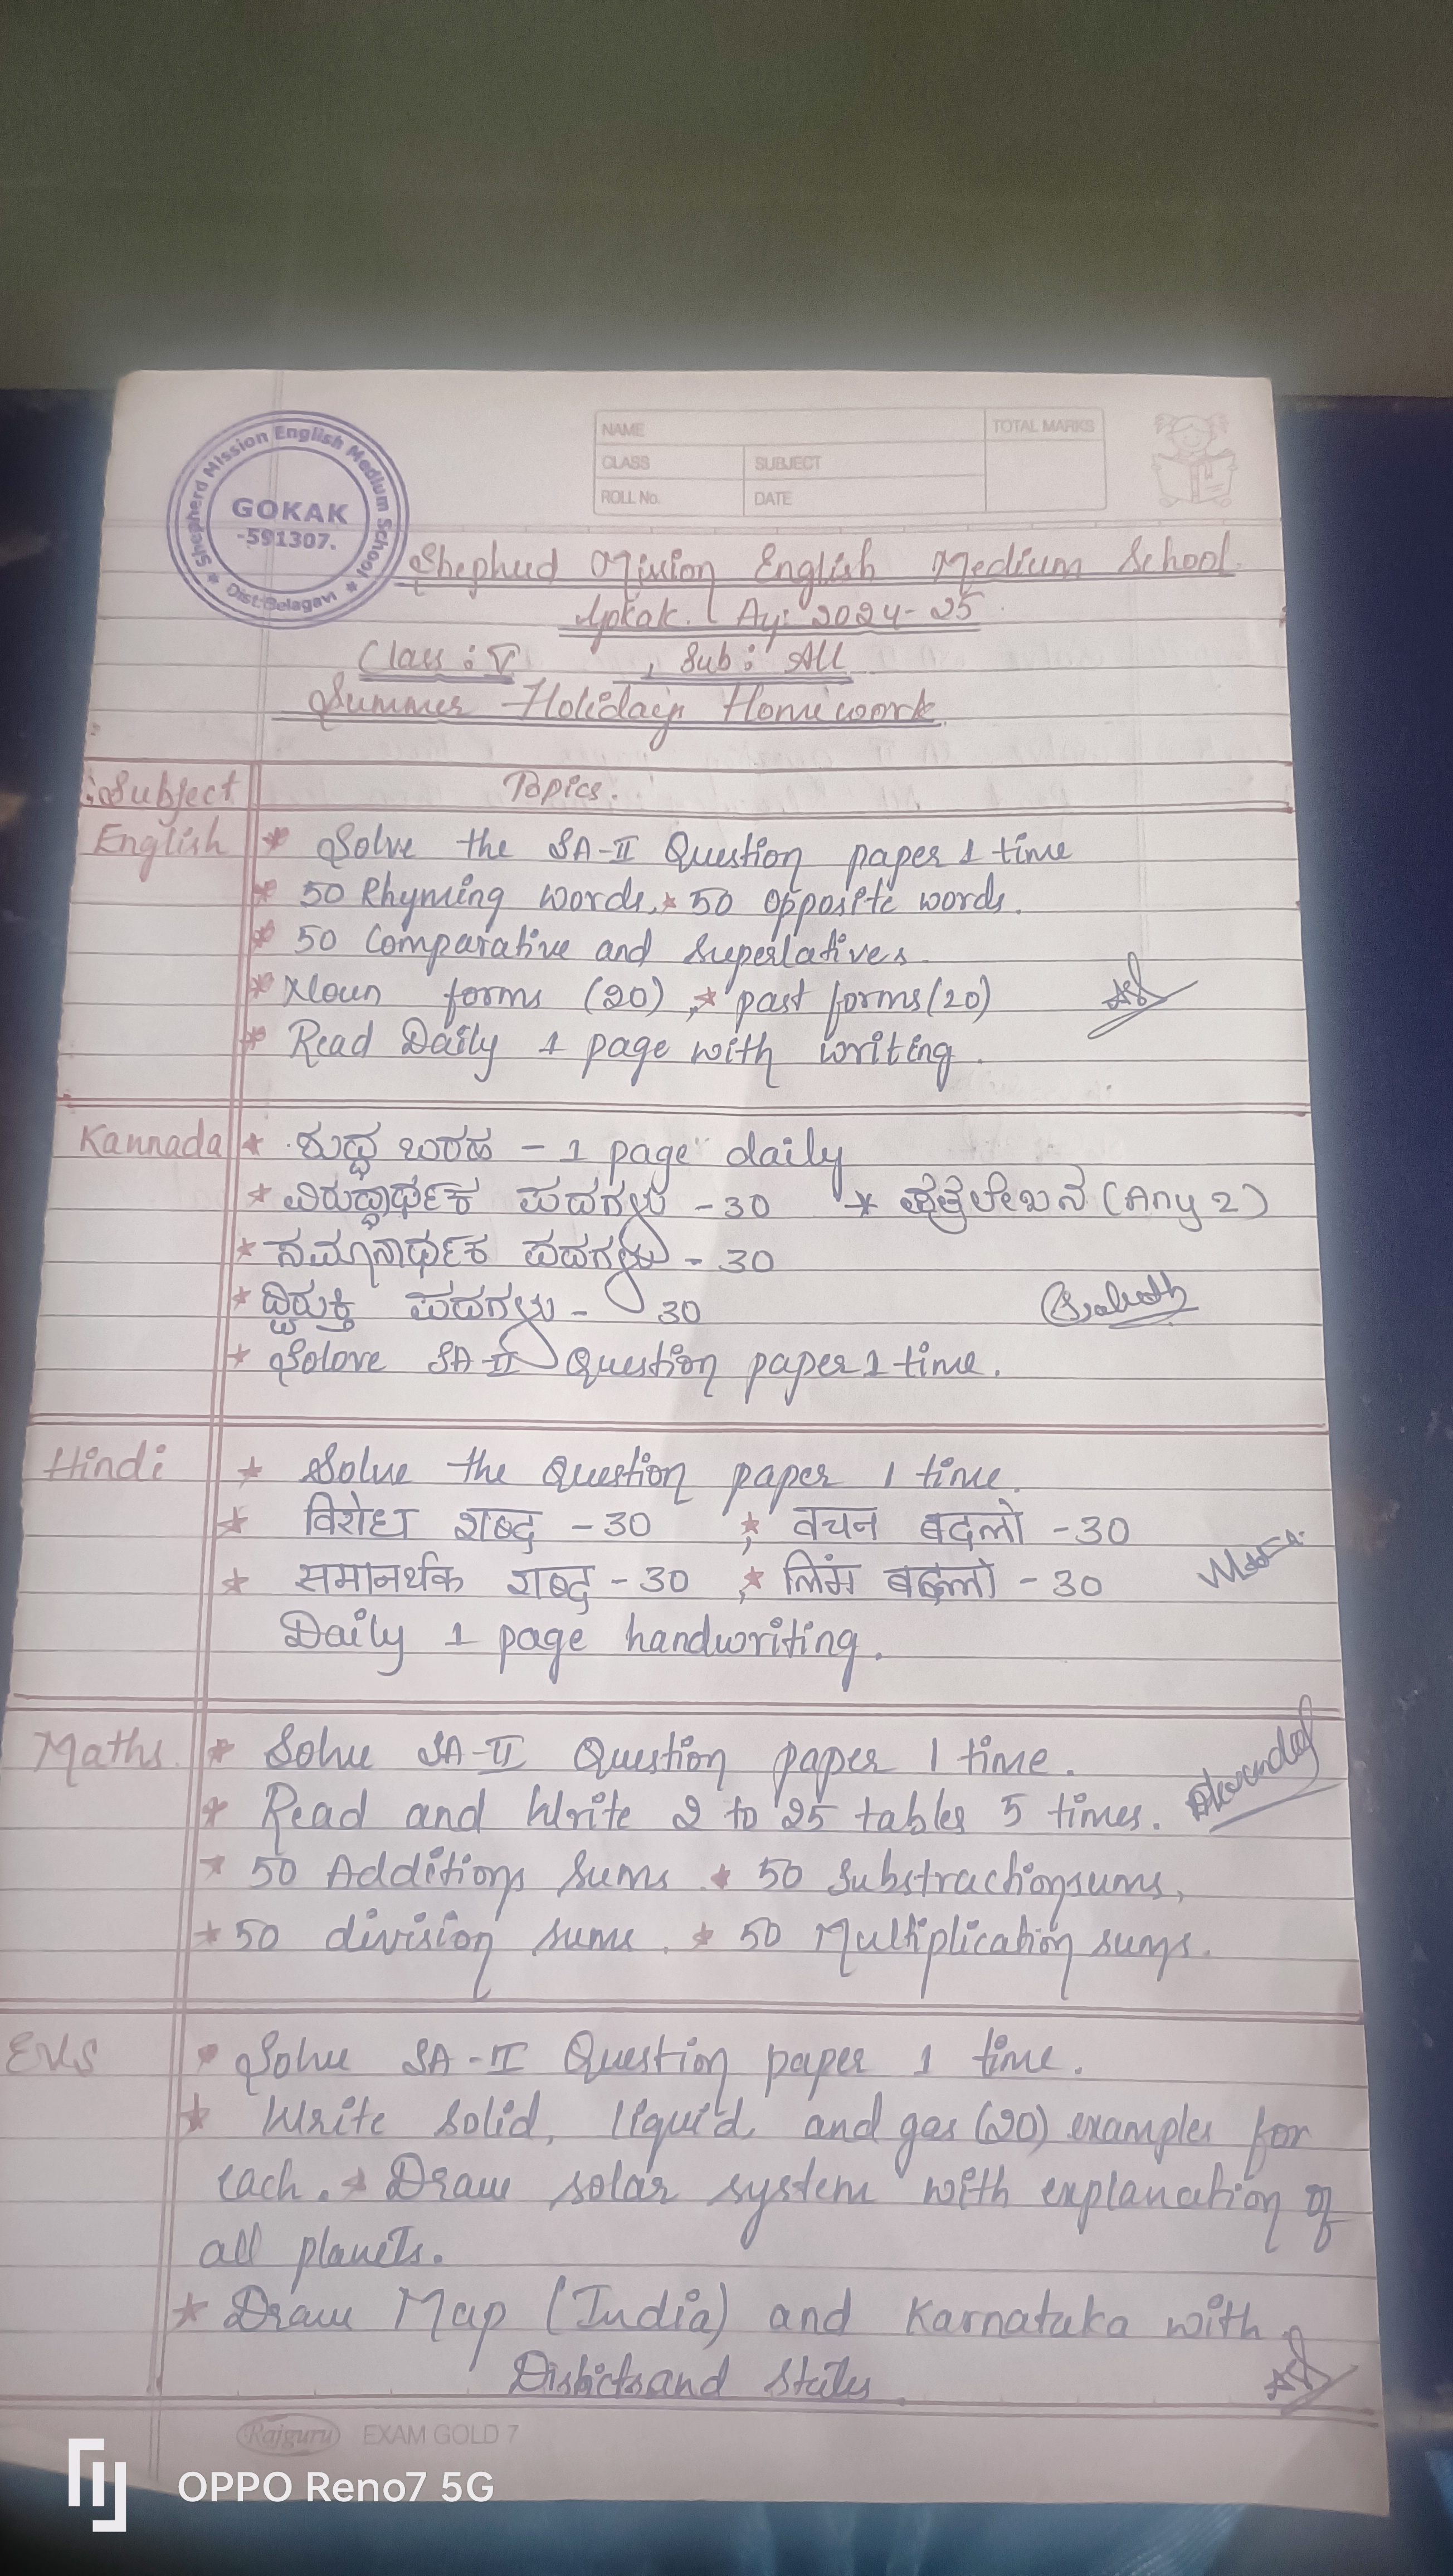 Shepherd Mission English Medium School
GOKAK
-591307.
Dist:Belagavi
NAME
TOTAL MARKS
CLASS
SUBJECT
ROLL No.
DATE
Shepherd Mission English Medium School.
Gokak. Ay: 2024-25
Class : V , Sub : All
Summer Holidays Homework
Subject Topics.
English * Solve the SA-II Question paper 1 time
* 50 Rhyming words. * 50 opposite words.
* 50 Comparative and Superlatives.
* Noun forms (20), * past forms (20)
* Read Daily 1 page with writing.
Kannada * ಶುದ್ಧ ಬರಹ - 1 page daily
* ವಿರುದ್ಧಾರ್ಥಕ ಪದಗಳು - 30 * ಪತ್ರಲೇಖನ (Any 2)
* ಸಮಾನಾರ್ಥಕ ಪದಗಳು - 30
* ದ್ವಿರುಕ್ತಿ ಪದಗಳು - 30
* Solove SA-II Question paper 1 time.
Hindi * Solve the Question paper 1 time.
* विरोध शब्द - 30 , * वचन बदलो - 30
* समानर्थक शब्द - 30 , * लिंग बदलो - 30
Daily 1 page handwriting.
Maths. * Solve SA-II Question paper 1 time.
* Read and Write 2 to 25 tables 5 times.
* 50 Additions Sums * 50 Substraction sums,
* 50 division sums. * 50 Multiplication sums.
EVS * Solve SA-II Question paper 1 time.
* Write solid, liquid, and gas (20) examples for
each. * Draw solar system with explanation of
all planets.
* Draw Map (India) and Karnataka with
Districts and States
Rajguru EXAM GOLD 7
OPPO Reno7 5G